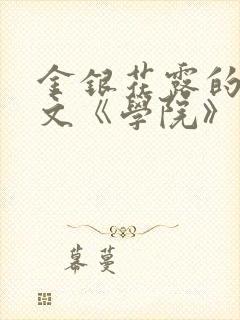 金銀花露的
文《學院》
幕蔓